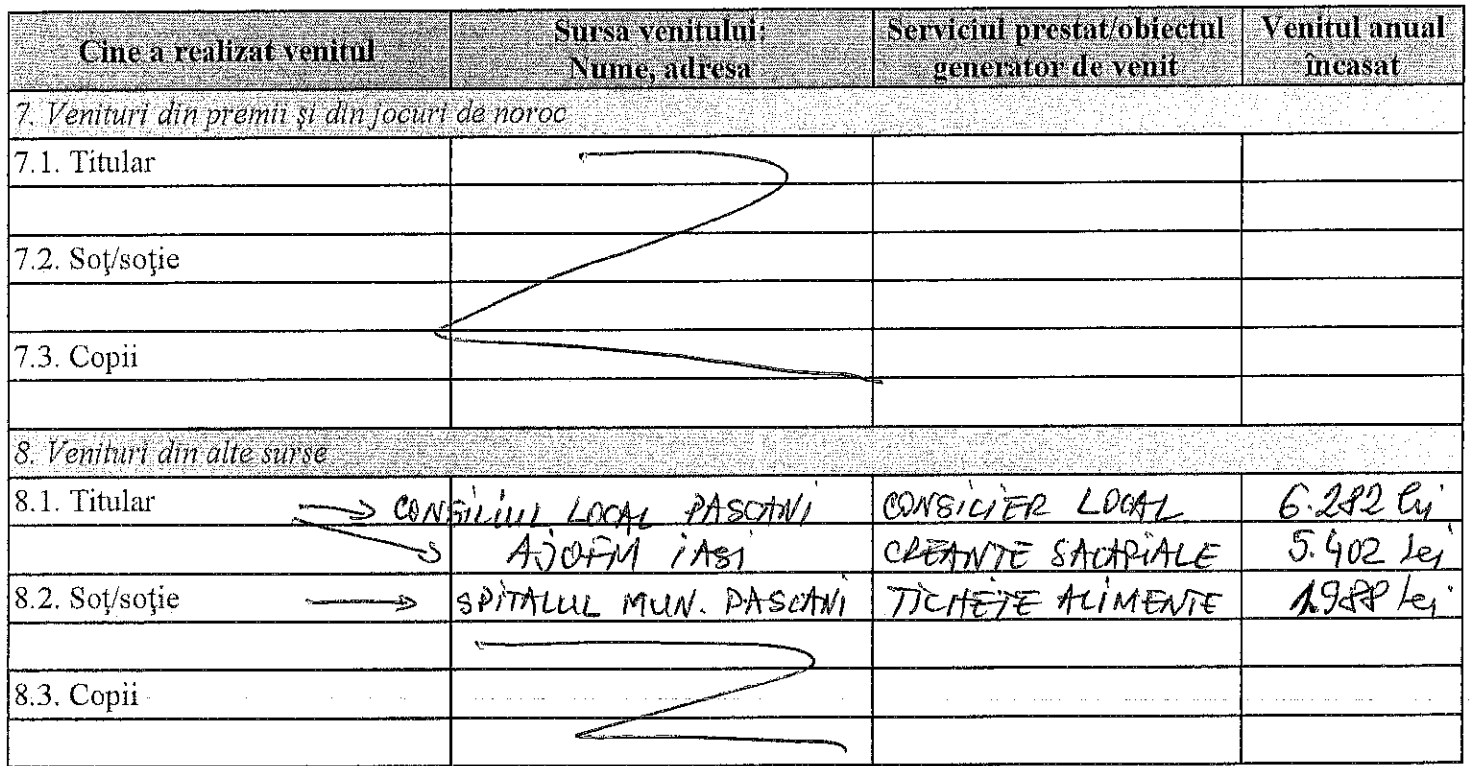 Cine a realizat venitul
Sursa venitului:
Nume, adresa
Serviciul prestat/obiectul
generator de venit
Venitul anual
încasat
7. Venituri din premii şi din jocuri de noroc
7.1. Titular
7.2. Soţ/soţie
7.3. Copii
8. Venituri din alte surse
8.1. Titular CONSILIUL LOCAL PASCANI CONSILIER LOCAL 6.282 lei
AJOFM IASI CREANTE SALARIALE 5.402 lei
8.2. Soţ/soţie SPITALUL MUN. PASCANI TICHETE ALIMENTE 1.988 lei
8.3. Copii